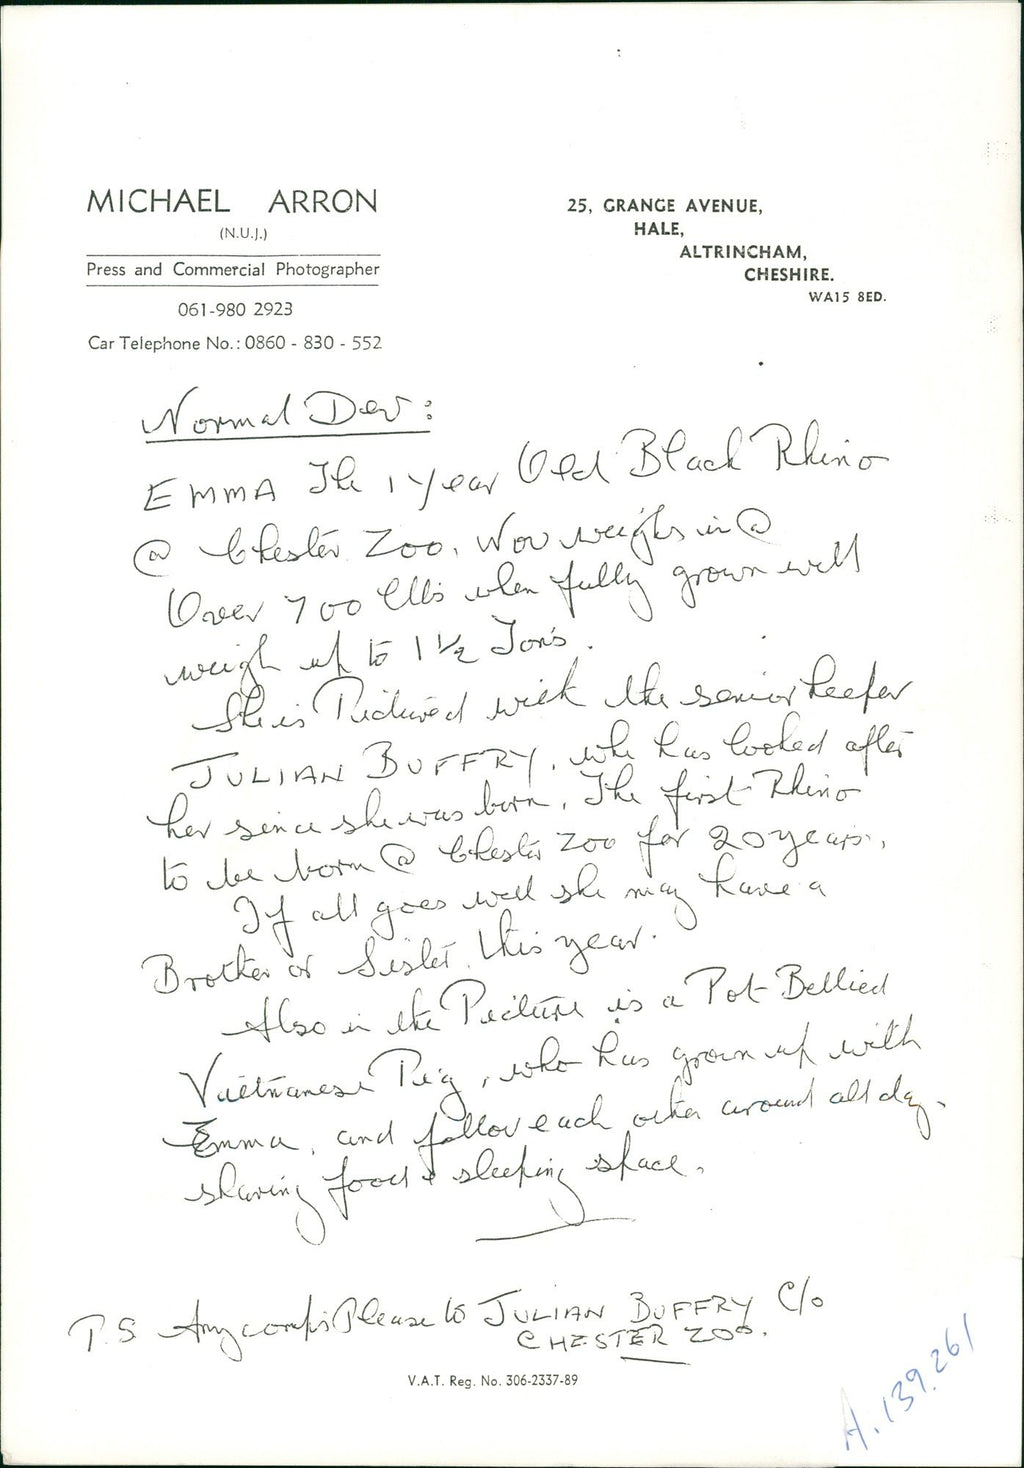 MICHAEL ARRON
(N.U.J.)
Press and Commercial Photographer
061-980 2923
Car Telephone No.: 0860 - 830 - 552
25, GRANGE AVENUE,
HALE,
ALTRINCHAM,
CHESHIRE.
WA15 8ED.
Normal Dev:
EMMA The 1 year Old Black Rhino
@ Chester Zoo. Now weighs in @
Over 700 llbs when fully grown will
weigh up to 1 1/2 Ton's.
She is Pictured with the senior keeper
JULIAN BUFFRY, who has looked after
her since she was born. The first Rhino
to be born @ Chester Zoo for 20 years.
If all goes well she may have a
Brother or Sister this year.
Also in the Picture is a Pot-Bellied
Vietnamese Pig, who has grown up with
Emma, and follow each other around all day.
sharing food & sleeping space.
P.S Any comp's Please to JULIAN BUFFRY C/o
CHESTER ZOO.
V.A.T. Reg. No. 306-2337-89
A.139.261